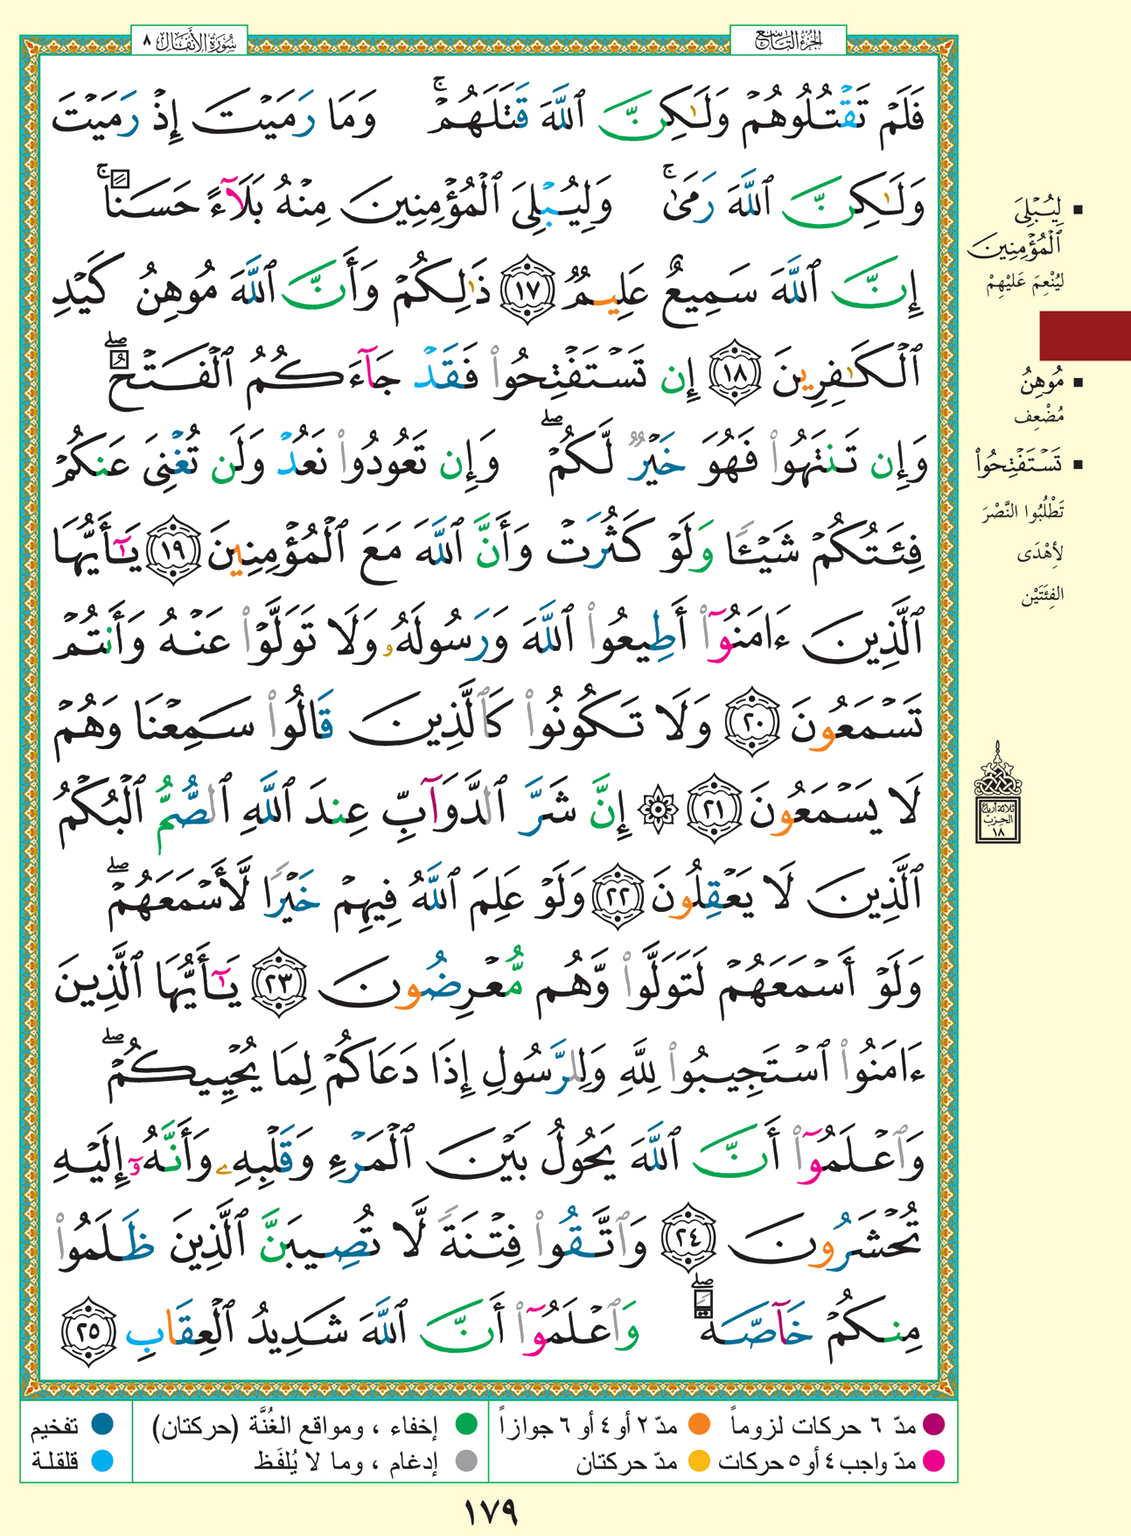 الجزء التاسع
سورة الأنفال ٨
فَلَمْ تَقْتُلُوهُمْ وَلَٰكِنَّ ٱللَّهَ قَتَلَهُمْ ۚ وَمَا رَمَيْتَ إِذْ رَمَيْتَ
وَلَٰكِنَّ ٱللَّهَ رَمَىٰ ۚ وَلِيُبْلِىَ ٱلْمُؤْمِنِينَ مِنْهُ بَلَآءً حَسَنًا ۚ
إِنَّ ٱللَّهَ سَمِيعٌ عَلِيمٌ ١٧ ذَٰلِكُمْ وَأَنَّ ٱللَّهَ مُوهِنُ كَيْدِ
ٱلْكَٰفِرِينَ ١٨ إِن تَسْتَفْتِحُوا۟ فَقَدْ جَآءَكُمُ ٱلْفَتْحُ ۖ
وَإِن تَنتَهُوا۟ فَهُوَ خَيْرٌ لَّكُمْ ۖ وَإِن تَعُودُوا۟ نَعُدْ وَلَن تُغْنِىَ عَنكُمْ
فِئَتُكُمْ شَيْـًٔا وَلَوْ كَثُرَتْ وَأَنَّ ٱللَّهَ مَعَ ٱلْمُؤْمِنِينَ ١٩ يَٰٓأَيُّهَا
ٱلَّذِينَ ءَامَنُوٓا۟ أَطِيعُوا۟ ٱللَّهَ وَرَسُولَهُۥ وَلَا تَوَلَّوْا۟ عَنْهُ وَأَنتُمْ
تَسْمَعُونَ ٢٠ وَلَا تَكُونُوا۟ كَٱلَّذِينَ قَالُوا۟ سَمِعْنَا وَهُمْ
لَا يَسْمَعُونَ ٢١ ۞ إِنَّ شَرَّ ٱلدَّوَآبِّ عِندَ ٱللَّهِ ٱلصُّمُّ ٱلْبُكْمُ
ٱلَّذِينَ لَا يَعْقِلُونَ ٢٢ وَلَوْ عَلِمَ ٱللَّهُ فِيهِمْ خَيْرًا لَّأَسْمَعَهُمْ ۖ
وَلَوْ أَسْمَعَهُمْ لَتَوَلَّوا۟ وَّهُم مُّعْرِضُونَ ٢٣ يَٰٓأَيُّهَا ٱلَّذِينَ
ءَامَنُوا۟ ٱسْتَجِيبُوا۟ لِلَّهِ وَلِلرَّسُولِ إِذَا دَعَاكُمْ لِمَا يُحْيِيكُمْ ۖ
وَٱعْلَمُوٓا۟ أَنَّ ٱللَّهَ يَحُولُ بَيْنَ ٱلْمَرْءِ وَقَلْبِهِۦ وَأَنَّهُۥٓ إِلَيْهِ
تُحْشَرُونَ ٢٤ وَٱتَّقُوا۟ فِتْنَةً لَّا تُصِيبَنَّ ٱلَّذِينَ ظَلَمُوا۟
مِنكُمْ خَآصَّةً ۖ وَٱعْلَمُوٓا۟ أَنَّ ٱللَّهَ شَدِيدُ ٱلْعِقَابِ ٢٥
▪ لِيُبْلِىَ
ٱلْمُؤْمِنِينَ
لِيُنْعِمَ عَلَيْهِمْ
▪ مُوهِنُ
مُضْعِف
▪ تَسْتَفْتِحُوا۟
تَطْلُبُوا النَّصْرَ
لِأَهْدَى
الفِئَتَيْن
ثلاثة أرباع
الحزب
١٨
مدّ ٦ حركات لزوماً
مدّ ٢ أو ٤ أو ٦ جوازاً
إخفاء ، ومواقع الغُنَّة (حركتان)
تفخيم
مدّ واجب ٤ أو ٥ حركات
مدّ حركتان
إدغام ، وما لا يُلفَظ
قلقلة
١٧٩